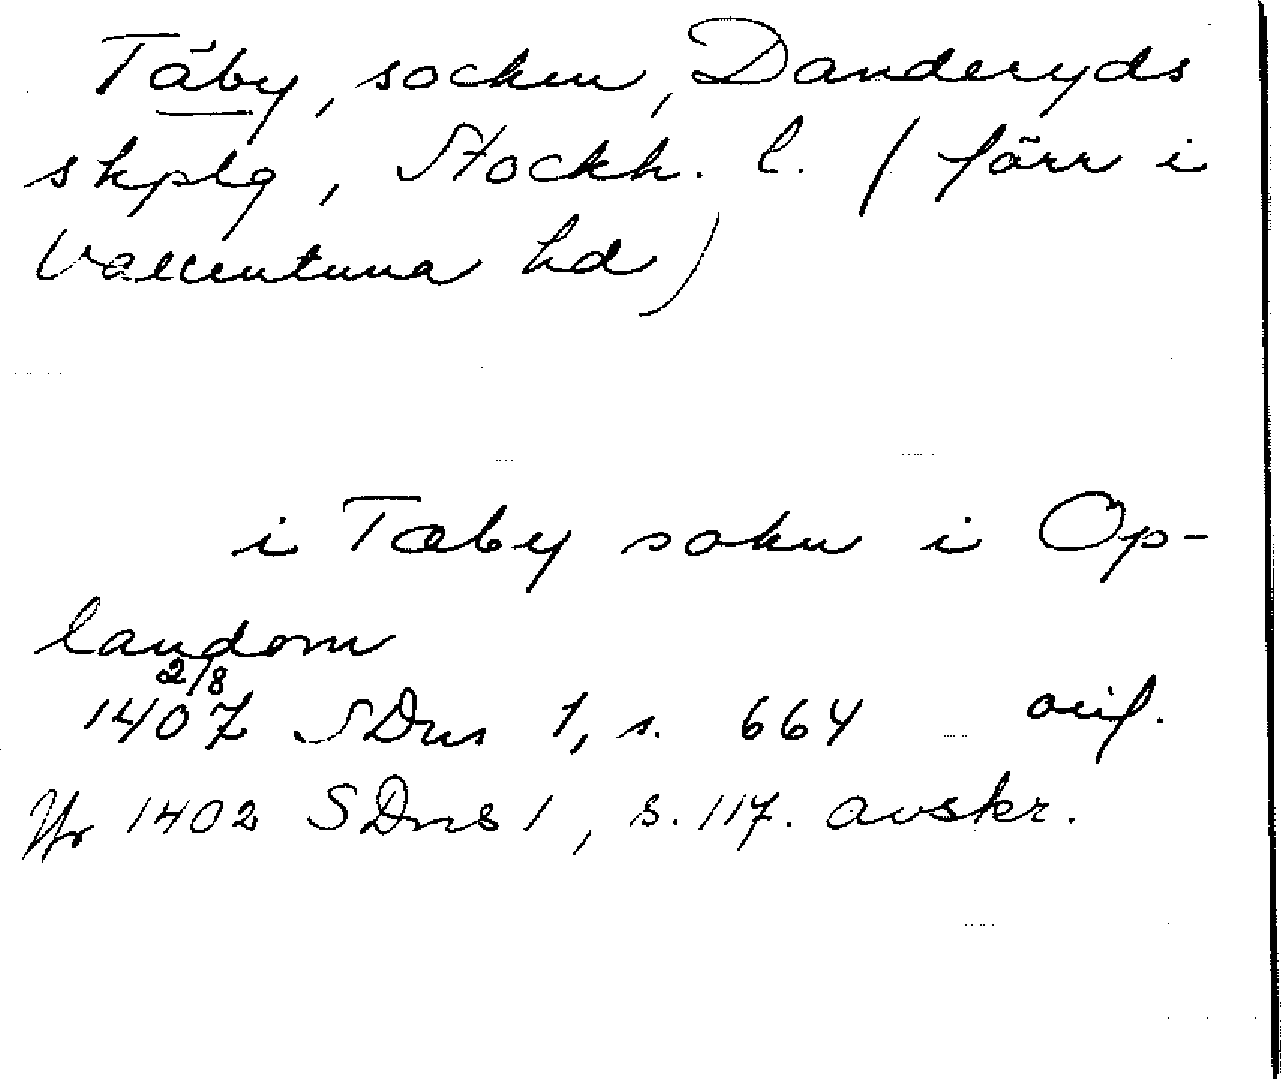 Täby, socken, Danderyds
skplg, Stockh. l. (förr i
Vallentuna hd)
i Tæby sokn i Op-
landom
2/8
1407 SDns 1, s. 664 orig.
Jfr 1402 SDns 1, s. 117. avskr.